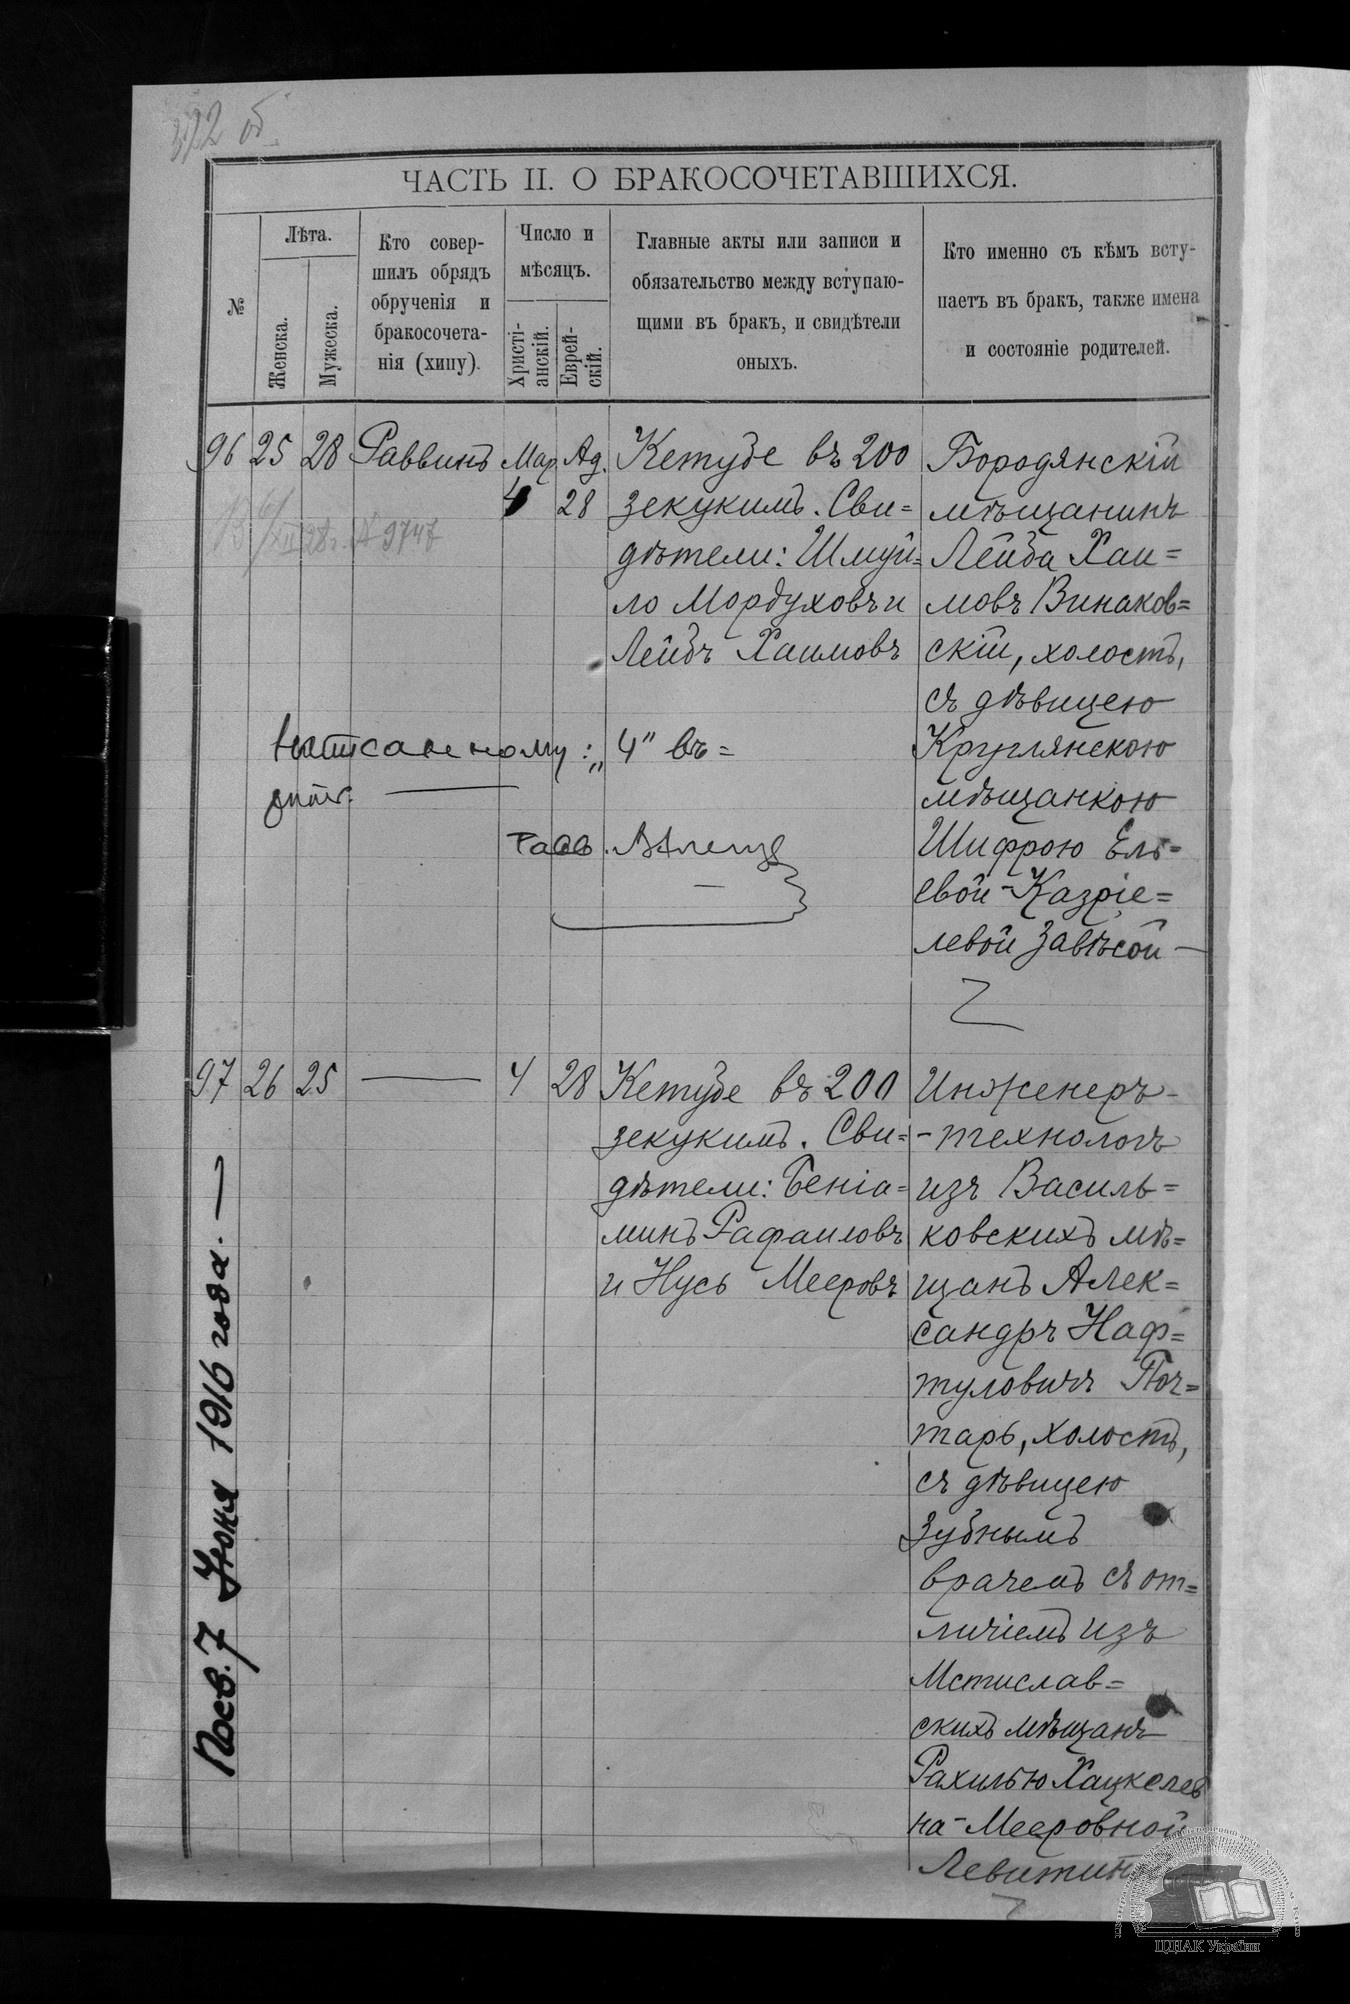 322 об.
ЧАСТЬ II. О БРАКОСОЧЕТАВШИХСЯ.
№
Лѣта.
Женска.
Мужеска.
Кто совер-
шилъ обрядъ
обрученія и
бракосочета-
нія (хипу).
Число и
мѣсяцъ.
Христі-
анскій.
Еврей-
скій.
Главные акты или записи и
обязательство между вступаю-
щими въ бракъ, и свидѣтели
оныхъ.
Кто именно съ кѣмъ всту-
паетъ въ бракъ, также имена
и состояніе родителей.
96 25 28 Раввинъ Мар. 4 Ад. 28
Кетубе въ 200
зекукимъ. Сви=
дѣтели: Шмуй=
ло Мордуховъ и
Лейбъ Хаимовъ
Бородянскій
мѣщанинъ
Лейба Хаи=
мовъ Винаков=
скій, холостъ,
съ дѣвицею
Круглянскою
мѣщанкою
Шифрою Ель=
евой-Казріе=
левой Завѣсой —
№ 9747
написанному: „4" въ=
Равв.
97 26 25 — 4 28
Кетубе въ 200
зекукимъ. Сви=
дѣтели: Беніа=
минъ Рафаиловъ
и Нусь Мееровъ
Инженеръ-
-технологъ
изъ Василь=
ковскихъ мѣ=
щанъ Алек=
сандръ Наф=
туловичъ Поч=
тарь, холостъ,
съ дѣвицею
Зубнымъ
врачемъ съ от=
личіемъ изъ
Мстислав=
скихъ мѣщанъ
Рахилью Хацкелев
на-Мееровной
7 Іюня 1916 года. —
ЦДІАК України